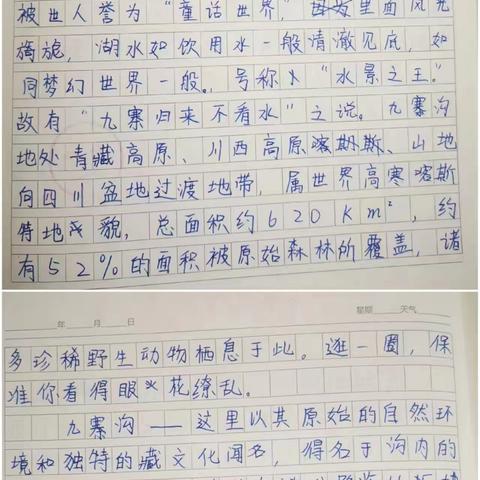 被世人誉为“童话世界”,里面风光
旖旎,湖水如饮用水一般清澈见底,如
同梦幻世界一般。号称“水景之王”。
故有“九寨归来不看水”之说。九寨沟
地处青藏高原、川西高原喀斯、山地
向四川盆地过渡地带,属世界高寒喀斯
特地貌,总面积约620km²,约
有52%的面积被原始森林所覆盖,诸
年 月 日 星期 天气
多珍稀野生动物栖息于此。逛一圈,保
准你看得眼花缭乱。
九寨沟——这里以其原始的自然环
境和独特的藏文化闻名,得名于沟内的